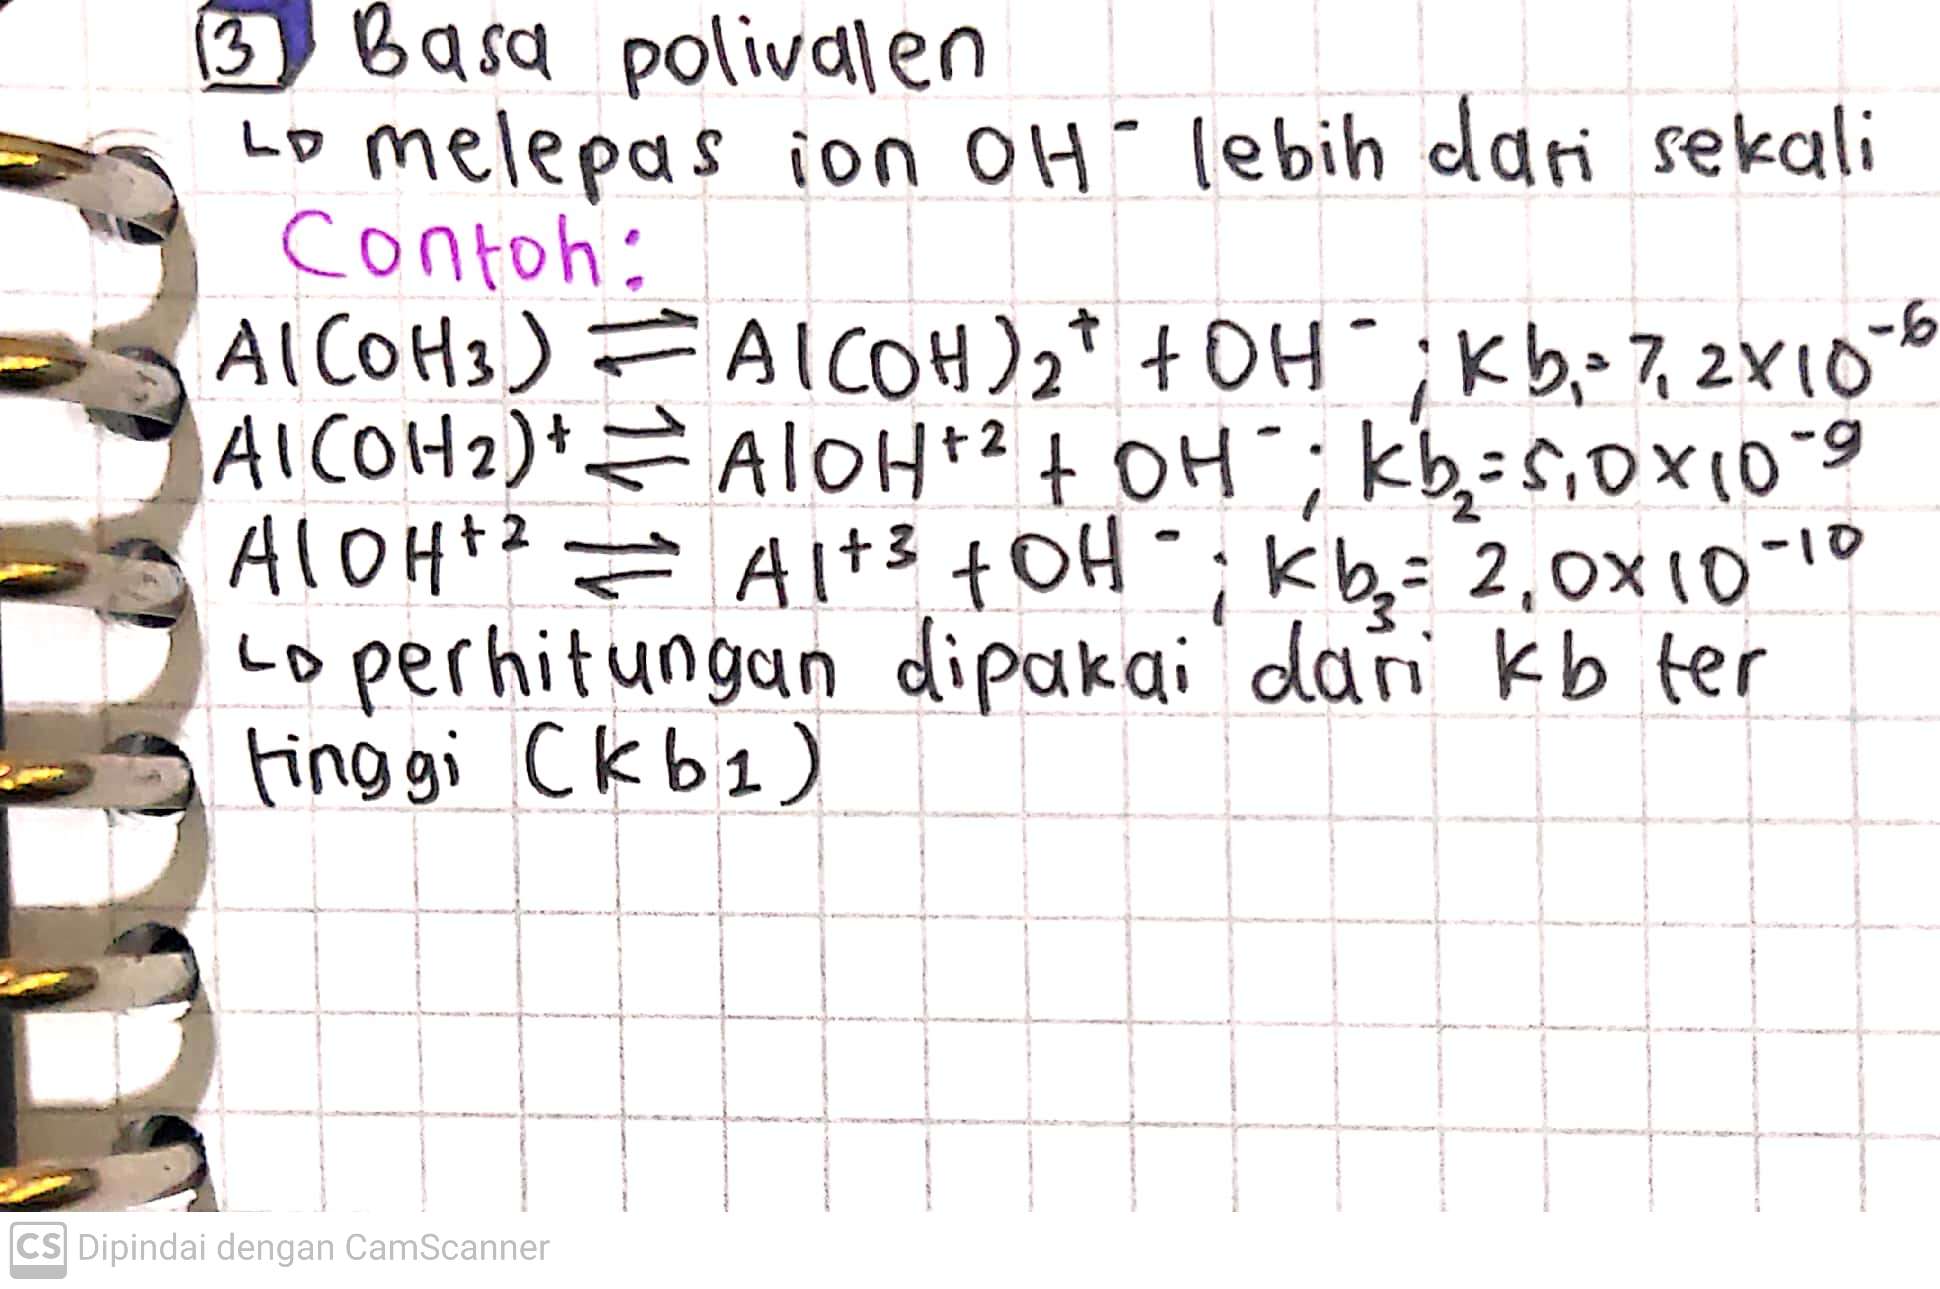 3 Basa polivalen
↳ melepas ion OH⁻ lebih dari sekali
Contoh:
Al(OH₃) ⇌ Al(OH)₂⁺ + OH⁻ ; Kb₁ = 7,2 x 10⁻⁶
Al(OH₂)⁺ ⇌ AlOH⁺² + OH⁻ ; Kb₂ = 5,0 x 10⁻⁹
AlOH⁺² ⇌ Al⁺³ + OH⁻ ; Kb₃ = 2,0 x 10⁻¹⁰
↳ perhitungan dipakai dari Kb ter
tinggi (Kb1)
CS Dipindai dengan CamScanner